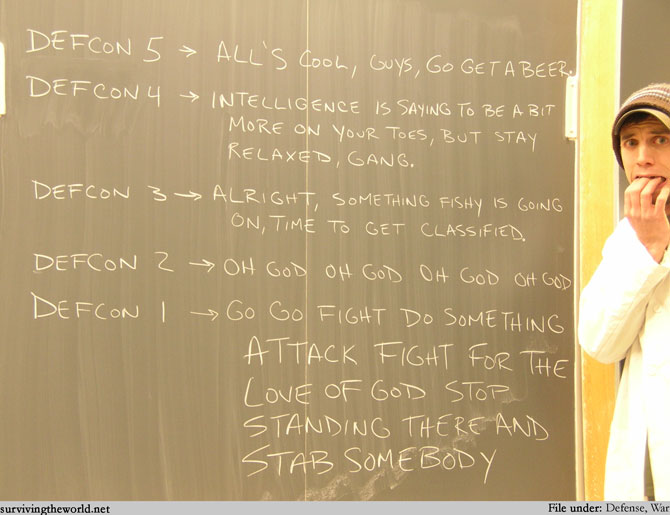 DEFCON 5 → ALL'S COOL, GUYS, GO GET A BEER.
DEFCON 4 → INTELLIGENCE IS SAYING TO BE A BIT
MORE ON YOUR TOES, BUT STAY
RELAXED, GANG.
DEFCON 3 → ALRIGHT, SOMETHING FISHY IS GOING
ON, TIME TO GET CLASSIFIED.
DEFCON 2 → OH GOD OH GOD OH GOD OH GOD
DEFCON 1 → GO GO FIGHT DO SOMETHING
ATTACK FIGHT FOR THE
LOVE OF GOD STOP
STANDING THERE AND
STAB SOMEBODY
survivingtheworld.net File under: Defense, War